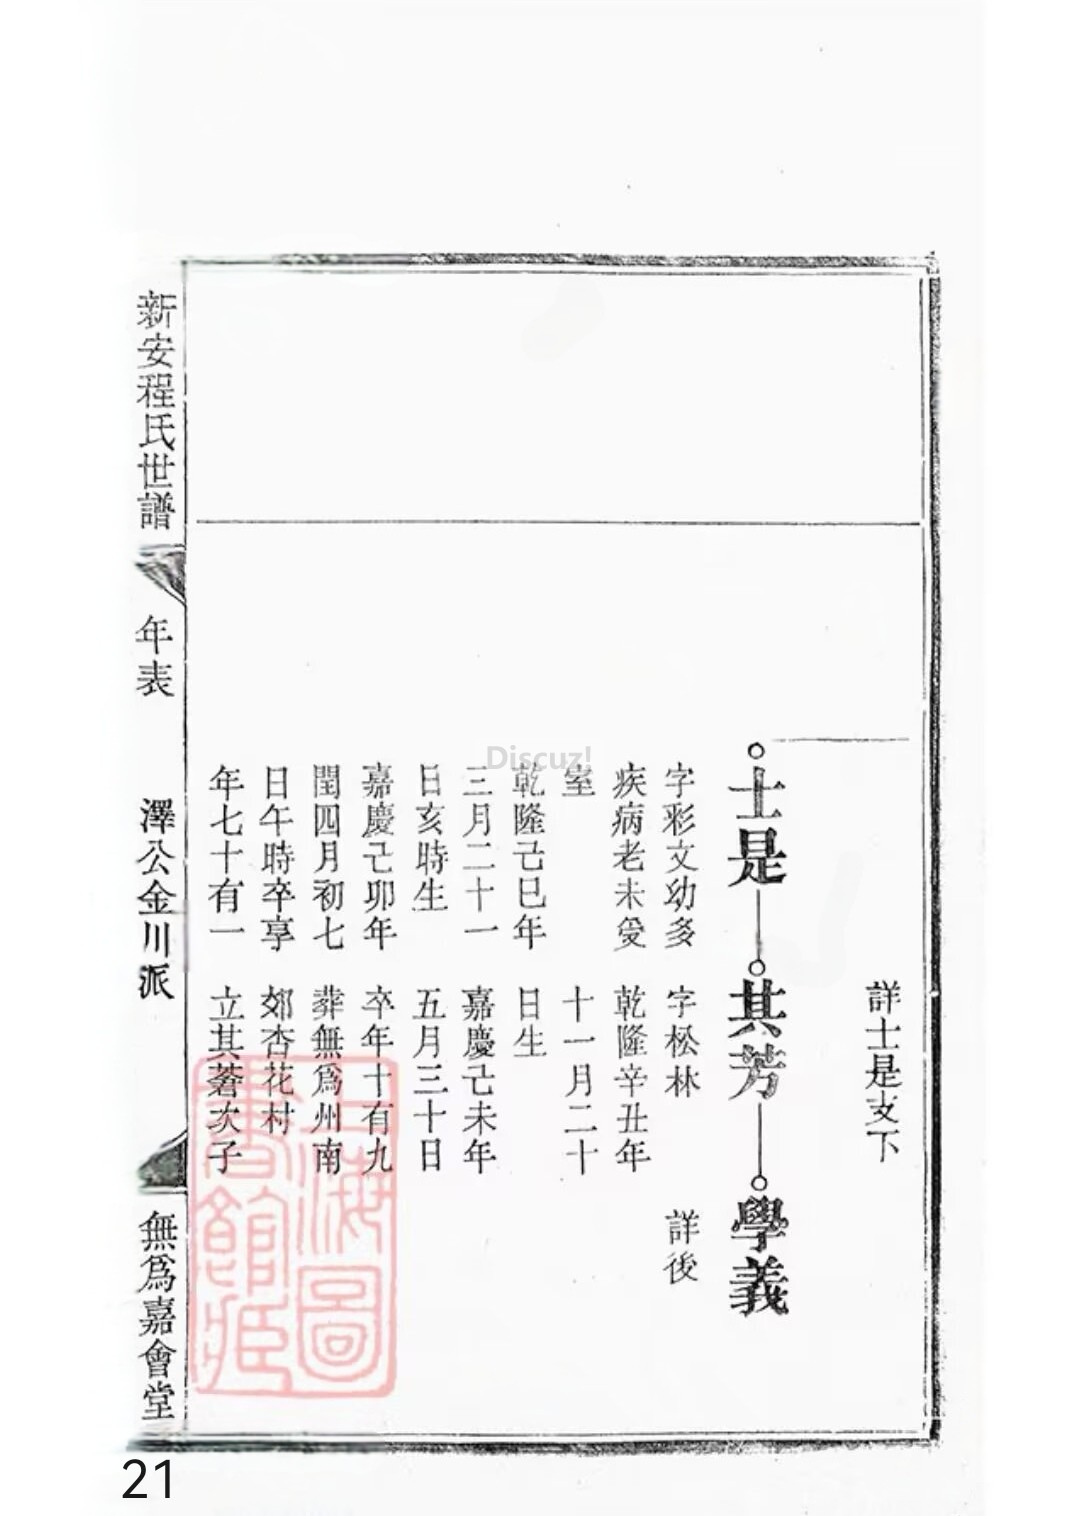 詳士是支下
士是
其芳
學義
字彩文幼多
疾病老未受
室
乾隆己巳年
三月二十一
日亥時生
嘉慶己卯年
閏四月初七
日午時卒享
年七十有一
字松林
乾隆辛丑年
十一月二十
日生
嘉慶己未年
五月三十日
卒年十有九
葬無爲州南
郊杏花村
立其蒼次子
詳後
新安程氏世譜
年表
澤公金川派
無爲嘉會堂
上海圖
書館藏
Discuz!
21